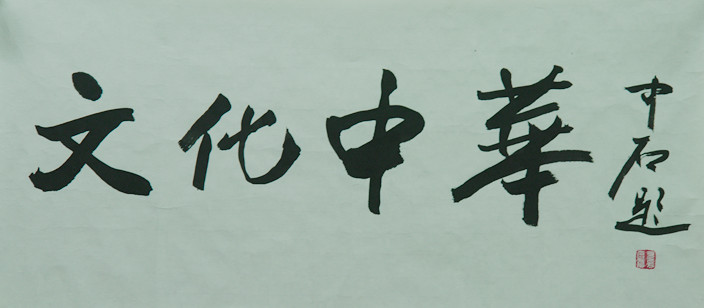 文化中華
中石題